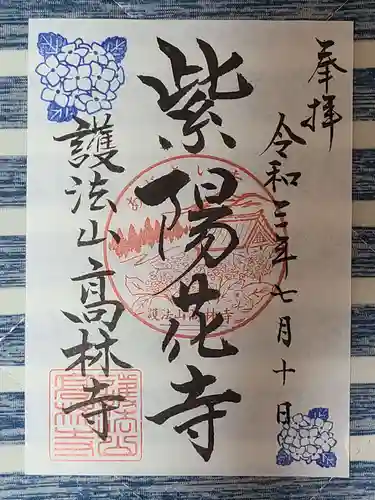 奉拝
令和三年七月十日
紫陽花寺
護法山高林寺
護法山高林寺